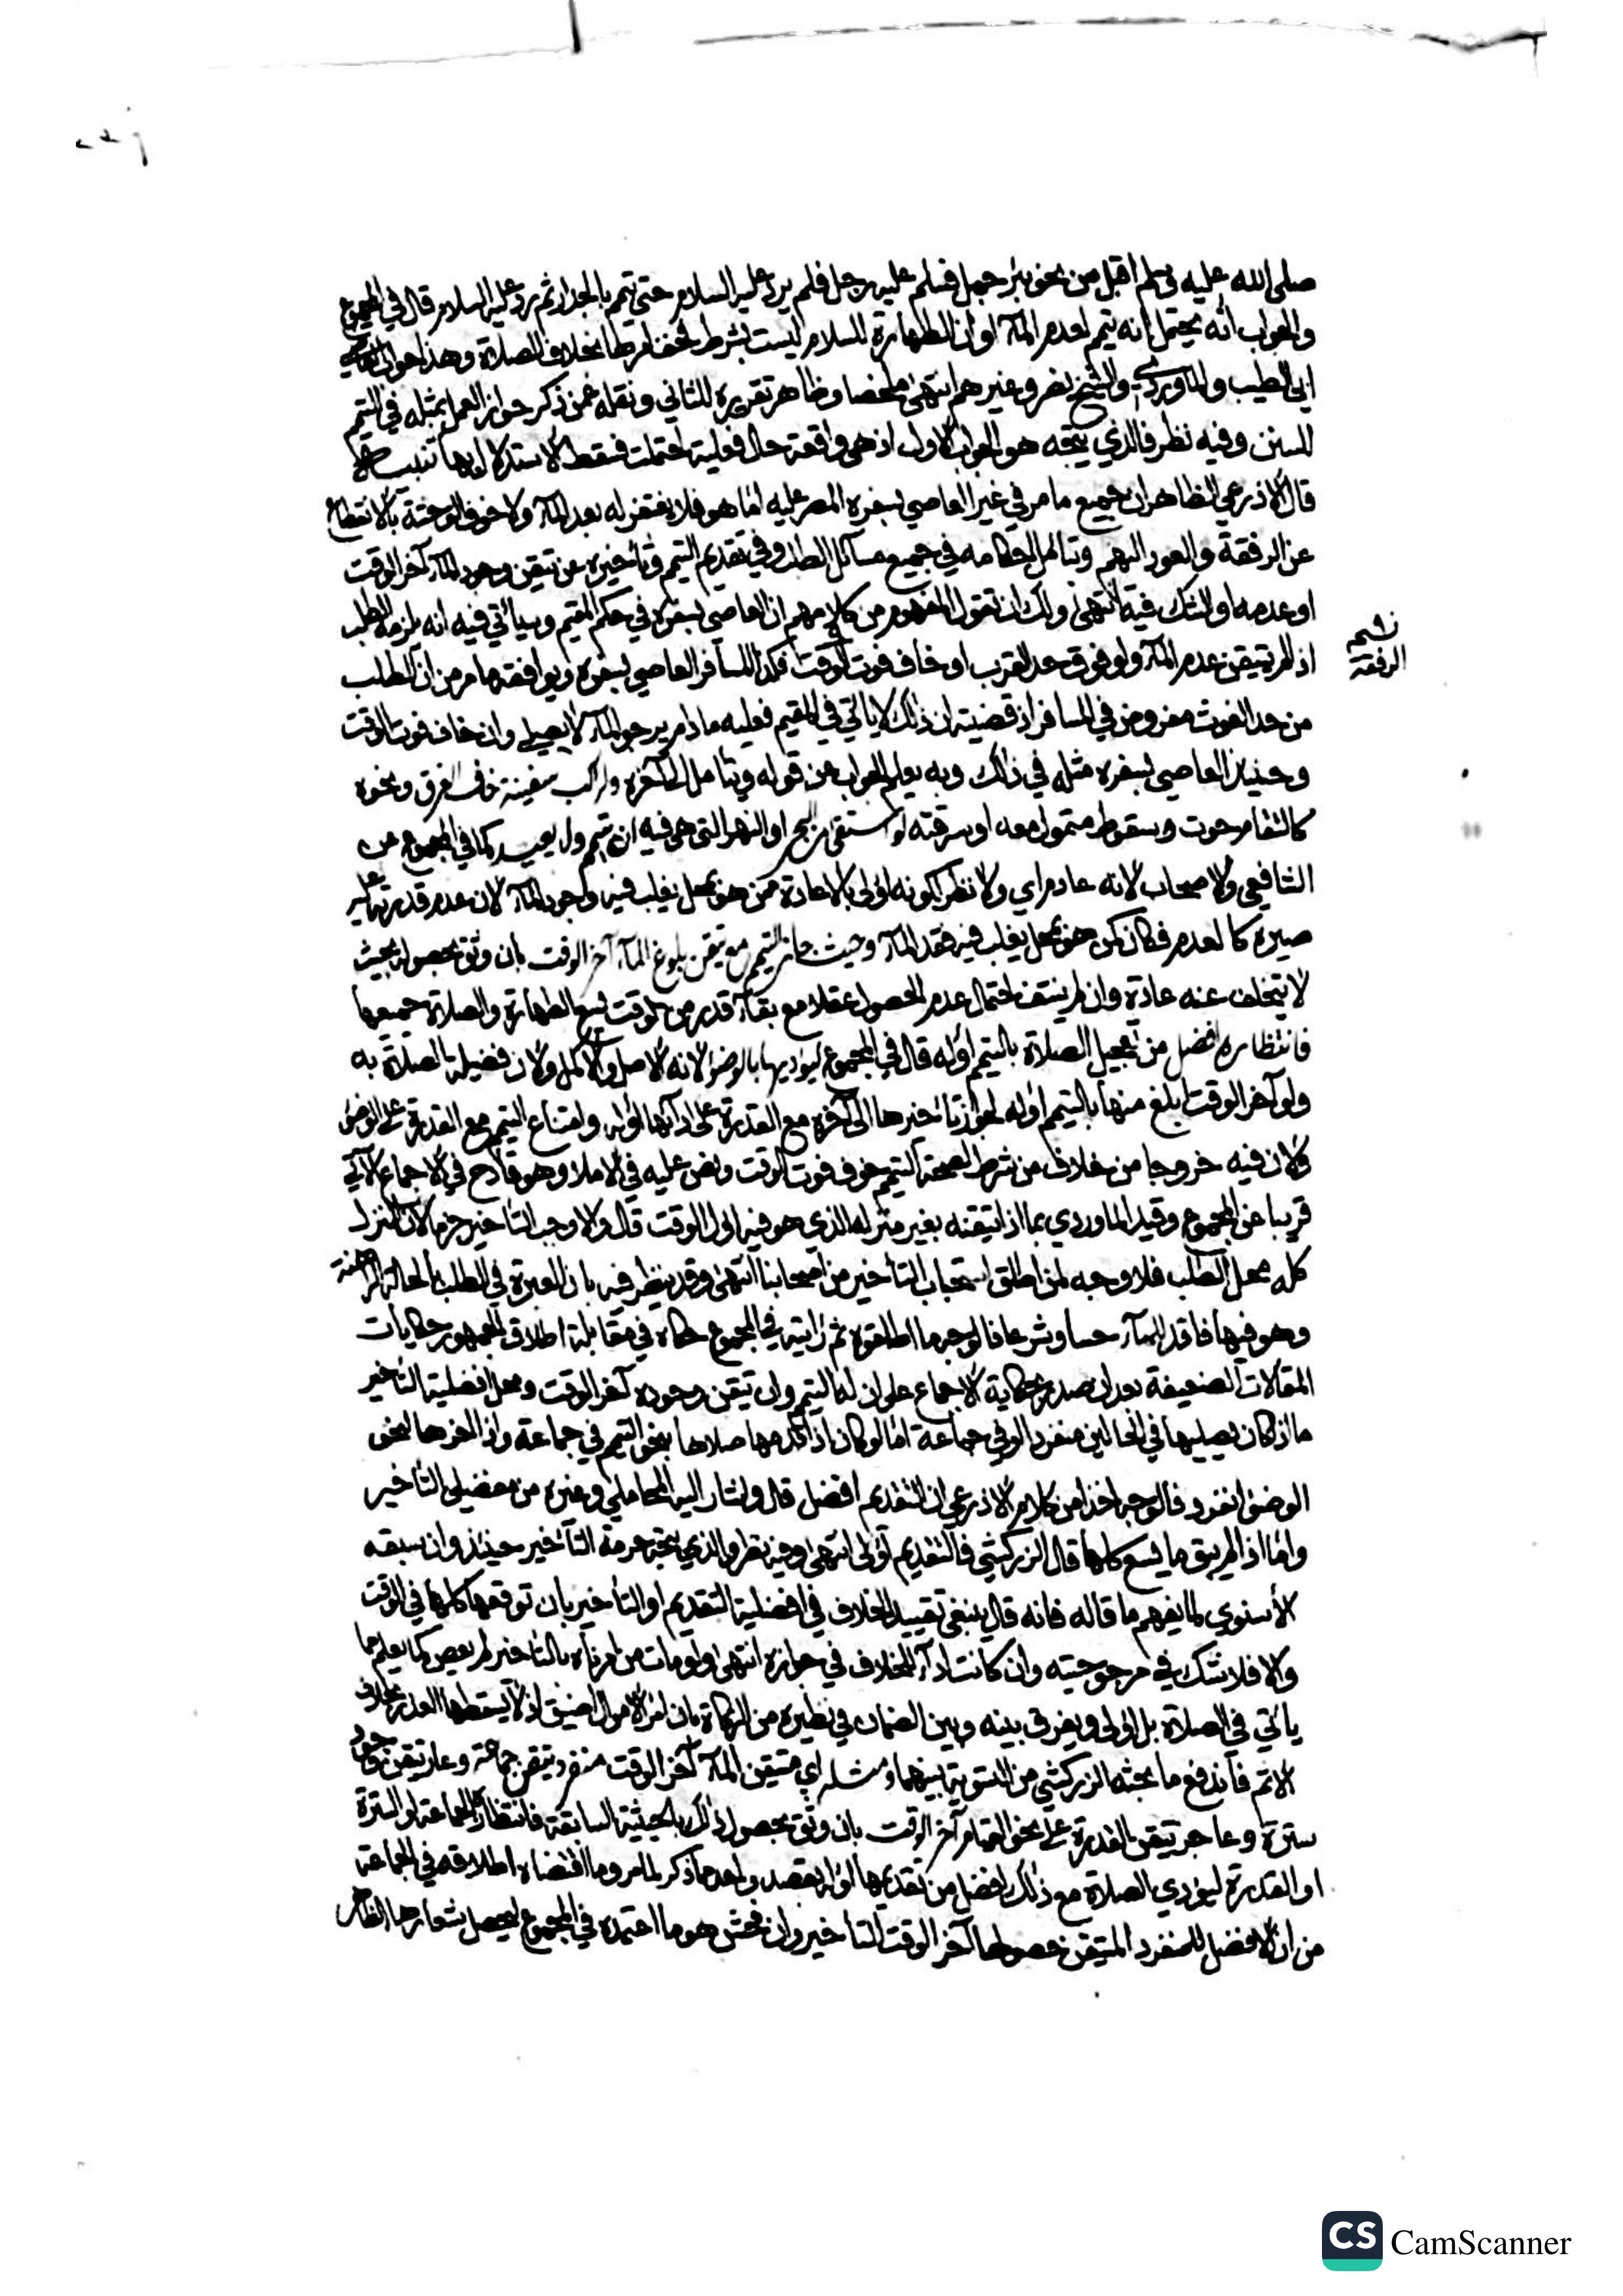 صلى الله عليه وسلم اقبل من نحو بئر جمل فسلم عليه رجل فلم يرد عليه السلام حتى تيمم بالجدار ثم رد عليه السلام قال في المجموع
والجواب انه يحتمل انه تيمم لعدم المآء او ان الطهارة للسلام ليست بشرط فخف امرها بخلاف الصلاة وهذا جواب القاضي
ابي الطيب والماوردي والشيخ نصر وغيرهم انتهى ملخصا وظاهر تقريره للثاني ونقله عمن ذكر جواز العمل بمثله في التيمم
للسنن وفيه نظر فالذي يتجه هو الجواب الاول اذ هي واقعة حال فعلية احتملت فسقط الاستدلال بها تنبيه
قال الاذرعي الظاهر ان جميع ما مر في غير العاصي بسفره المصر عليه اما هو فلا يغتفر له بعد المآء ولا خوف الوحشة بالانقطاع
عن الرفقة والعود اليهم وتبامل احكامه في جميع مسائل الطلب وفي تقديم التيمم وتأخيره عن تيقن وجود المآء آخر الوقت
او عدمه او الشك فيه انتهى ولك ان تقول المفهوم من كلامهم ان العاصي بسفره في حكم المقيم وسيأتي فيه انه يلزمه الطلب
اذا لم يتيقن عدم المآء ولو فوق حد القرب او خاف فوت الوقت فكذا المسافر العاصي بسفره ويوافقه ما مر من ان الطلب
من حد الغوث مفروض في المسافر اذ قضيته ان ذلك لا ياتي في المقيم فعليه ما دام يرجو المآء لا يصلي وان خاف فوت الوقت
وحينئذ العاصي بسفره مثله في ذلك وبه يعلم الجواب عن قوله ويتامل الى آخره ولراكب سفينة خاف الغرق ونحوه
كالتقام حوت وسقوط متمول معه او سرقته لو استقى من البحر او النهر التي هي فيه ان يتيمم ولا يعيد كما في المجموع عن
الشافعي والاصحاب لانه عادم اي ولا نظر لكونه اولى بالاعادة ممن هو بمحل يغلب فيه وجود المآء لان عدم قدرته عليه
صيره كالعدم فكان كمن هو بمحل يغلب فيه فقد المآء وحيث جاز التيمم من تيقن بلوغ المآء آخر الوقت بان وثق بحصوله بحيث
لا يتخلف عنه عادة وان لم ينتف احتمال عدم الحصول عقلا مع بقآء قدر من الوقت يسع الطهارة والصلاة جميعها
فانتظاره افضل من تعجيل الصلاة بالتيمم اوله قال في المجموع ليؤديها بالوضوء لانه الاصل والاكمل ولان فضيلة الصلاة به
ولو آخر الوقت ابلغ منها بالتيمم اوله لجواز تأخيرها الى آخره مع القدرة على ادائها اوله وامتناع التيمم مع القدرة على الوضوء
ولان فيه خروجا من خلاف من شرط لصحة التيمم خوف فوت الوقت ونص عليه في الاملا وهو قادح في الاجماع الآتي
قريبا عن المجموع وقيد الماوردي بما اذا تيقنه بغير منزله الذي هو فيه اول الوقت قال والا وجب التأخير جزما لان المنزل
كله محل الطلب فلا وجه لمن اطلق استحباب التأخير من اصحابنا انتهى وقد ينظر فيه بان العبرة في الطلب بالحالة الراهنة
وهو فيها فاقد للمآء حسا وشرعا فالوجه ما اطلقوه ثم رايته في المجموع حكاه في مقابلة اطلاق الجمهور حكايات
المقالات الضعيفة بعد ان صدر بحكاية الاجماع على ان له التيمم وان تيقن وجوده آخر الوقت ومحل افضلية التأخير
ما اذا كان يصليها في الحالين منفردا او في جماعة اما لو كان اذا قدمها صلاها بنحو التيمم في جماعة واذا اخرها بنحو
الوضوء انفرد فالوجه اخذا من كلام الاذرعي ان التقديم افضل قال واشار اليه المحاملي وغيره من مفضلي التأخير
واما اذا لم يبق ما يسع كلها قال الزركشي فالتقديم اولى انتهى وفيه نظر والذي يتجه حرمة التأخير حينئذ وان سبقه
الأسنوي لما يفهم ما قاله فانه قال ينبغي تقييد الخلاف في افضلية التقديم او التأخير بان توقعها كلها في الوقت
والا فلا شك في مرجوحيته وان كانت ادآء للخلاف في جوازه انتهى ولو مات من امرناه بالتأخير لم يعص كما يعلم مما
ياتي في الصلاة بل اولى ويفرق بينه وبين الضمان في نظيره من الزكاة بان امر الاموال اضيق اذ لا يسقطها العذر بخلاف
الاثم فاندفع ما بحثه الزركشي من التسوية بينهما ومثله اي متيقن المآء آخر الوقت منفرد تيقن جماعة وعار تيقن وجود
سترة وعاجز تيقن القدرة على نحو القيام آخر الوقت بان وثق بحصول ذلك بالحيثية السابقة فانتظار الجماعة او السترة
او القدرة ليؤدي الصلاة مع ذلك افضل من تقديمها اوله بقصد واحد مما ذكر لما مر وما اقتضاه اطلاقه في الجماعة
من ان الافضل للمنفرد المتيقن حصولها آخر الوقت التأخير وان فحش هو ما اعتمده في المجموع ليحصل شعارها الظاهر
الرفقة
CS CamScanner